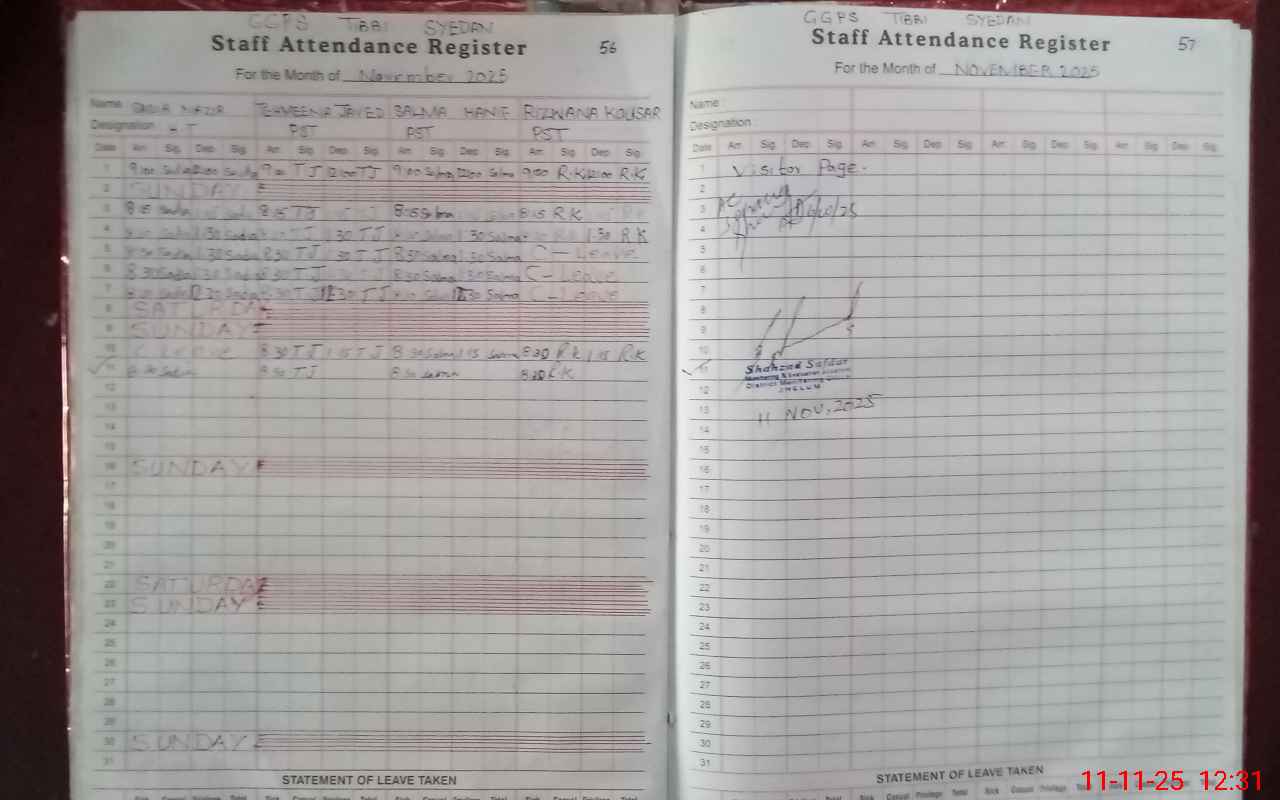 GGPS TIBBI SYEDAN
Staff Attendance Register 56
For the Month of November 2025
Name : SADIA NAZIR TEHMEENA JAVED SALMA HANIF RIZWANA KOUSAR
Designation : H T PST PST PST
Date Arr. Sig. Dep. Sig. Arr. Sig. Dep. Sig. Arr. Sig. Dep. Sig. Arr. Sig. Dep. Sig.
1 9:00 Sadia 12:00 Sadia 9:00 TJ 12:00 TJ 9:00 Salma 12:00 Salma 9:00 R.K 12:00 R.K
2 SUNDAY
3 8:15 Sadia 8:15 TJ 8:15 Salma 8:15 R K
4 1:30 Sadia TJ 1:30 TJ 1:30 Salma 1:30 R K
5 1:30 Sadia 8:30 TJ 1:30 TJ 8:30 Salma 1:30 Salma C-Leave
6 8:30 Sadia 1:30 Sadia 8:30 TJ 1:30 TJ 8:30 Salma 1:30 Salma C-Leave
7 Sadia 12:30 Sadia 8:30 TJ 12:30 TJ Salma 12:30 Salma C-Leave
8 SATURDAY
9 SUNDAY
10 C Leave 8:30 TJ 1:15 TJ 8:30 Salma 1:15 Salma 8:30 R K 1:15 R.K
11 8:30 Sadia 8:30 TJ 8:30 Salma 8:30 R.K
12
13
14
15
16 SUNDAY
17
18
19
20
21
22 SATURDAY
23 SUNDAY
24
25
26
27
28
29
30 SUNDAY
31
STATEMENT OF LEAVE TAKEN
Sick Casual Privilege Total Sick Casual Privilege Total Sick Casual Privilege Total
GGPS TIBBI SYEDAN
Staff Attendance Register 57
For the Month of NOVEMBER 2025
Name :
Designation :
Date Arr. Sig. Dep. Sig. Arr. Sig. Dep. Sig. Arr. Sig. Dep. Sig. Arr. Sig. Dep. Sig.
1 Visitor Page.
2
3
4
5
6
7
8
9
10
11 Shahzad Safdar
Monitoring & Evaluation
12 District Monitoring
JHELUM
13 11 NOV, 2025
14
15
16
17
18
19
20
21
22
23
24
25
26
27
28
29
30
31
STATEMENT OF LEAVE TAKEN
Sick Casual Privilege Total Sick Casual Privilege Total
11-11-25 12:31